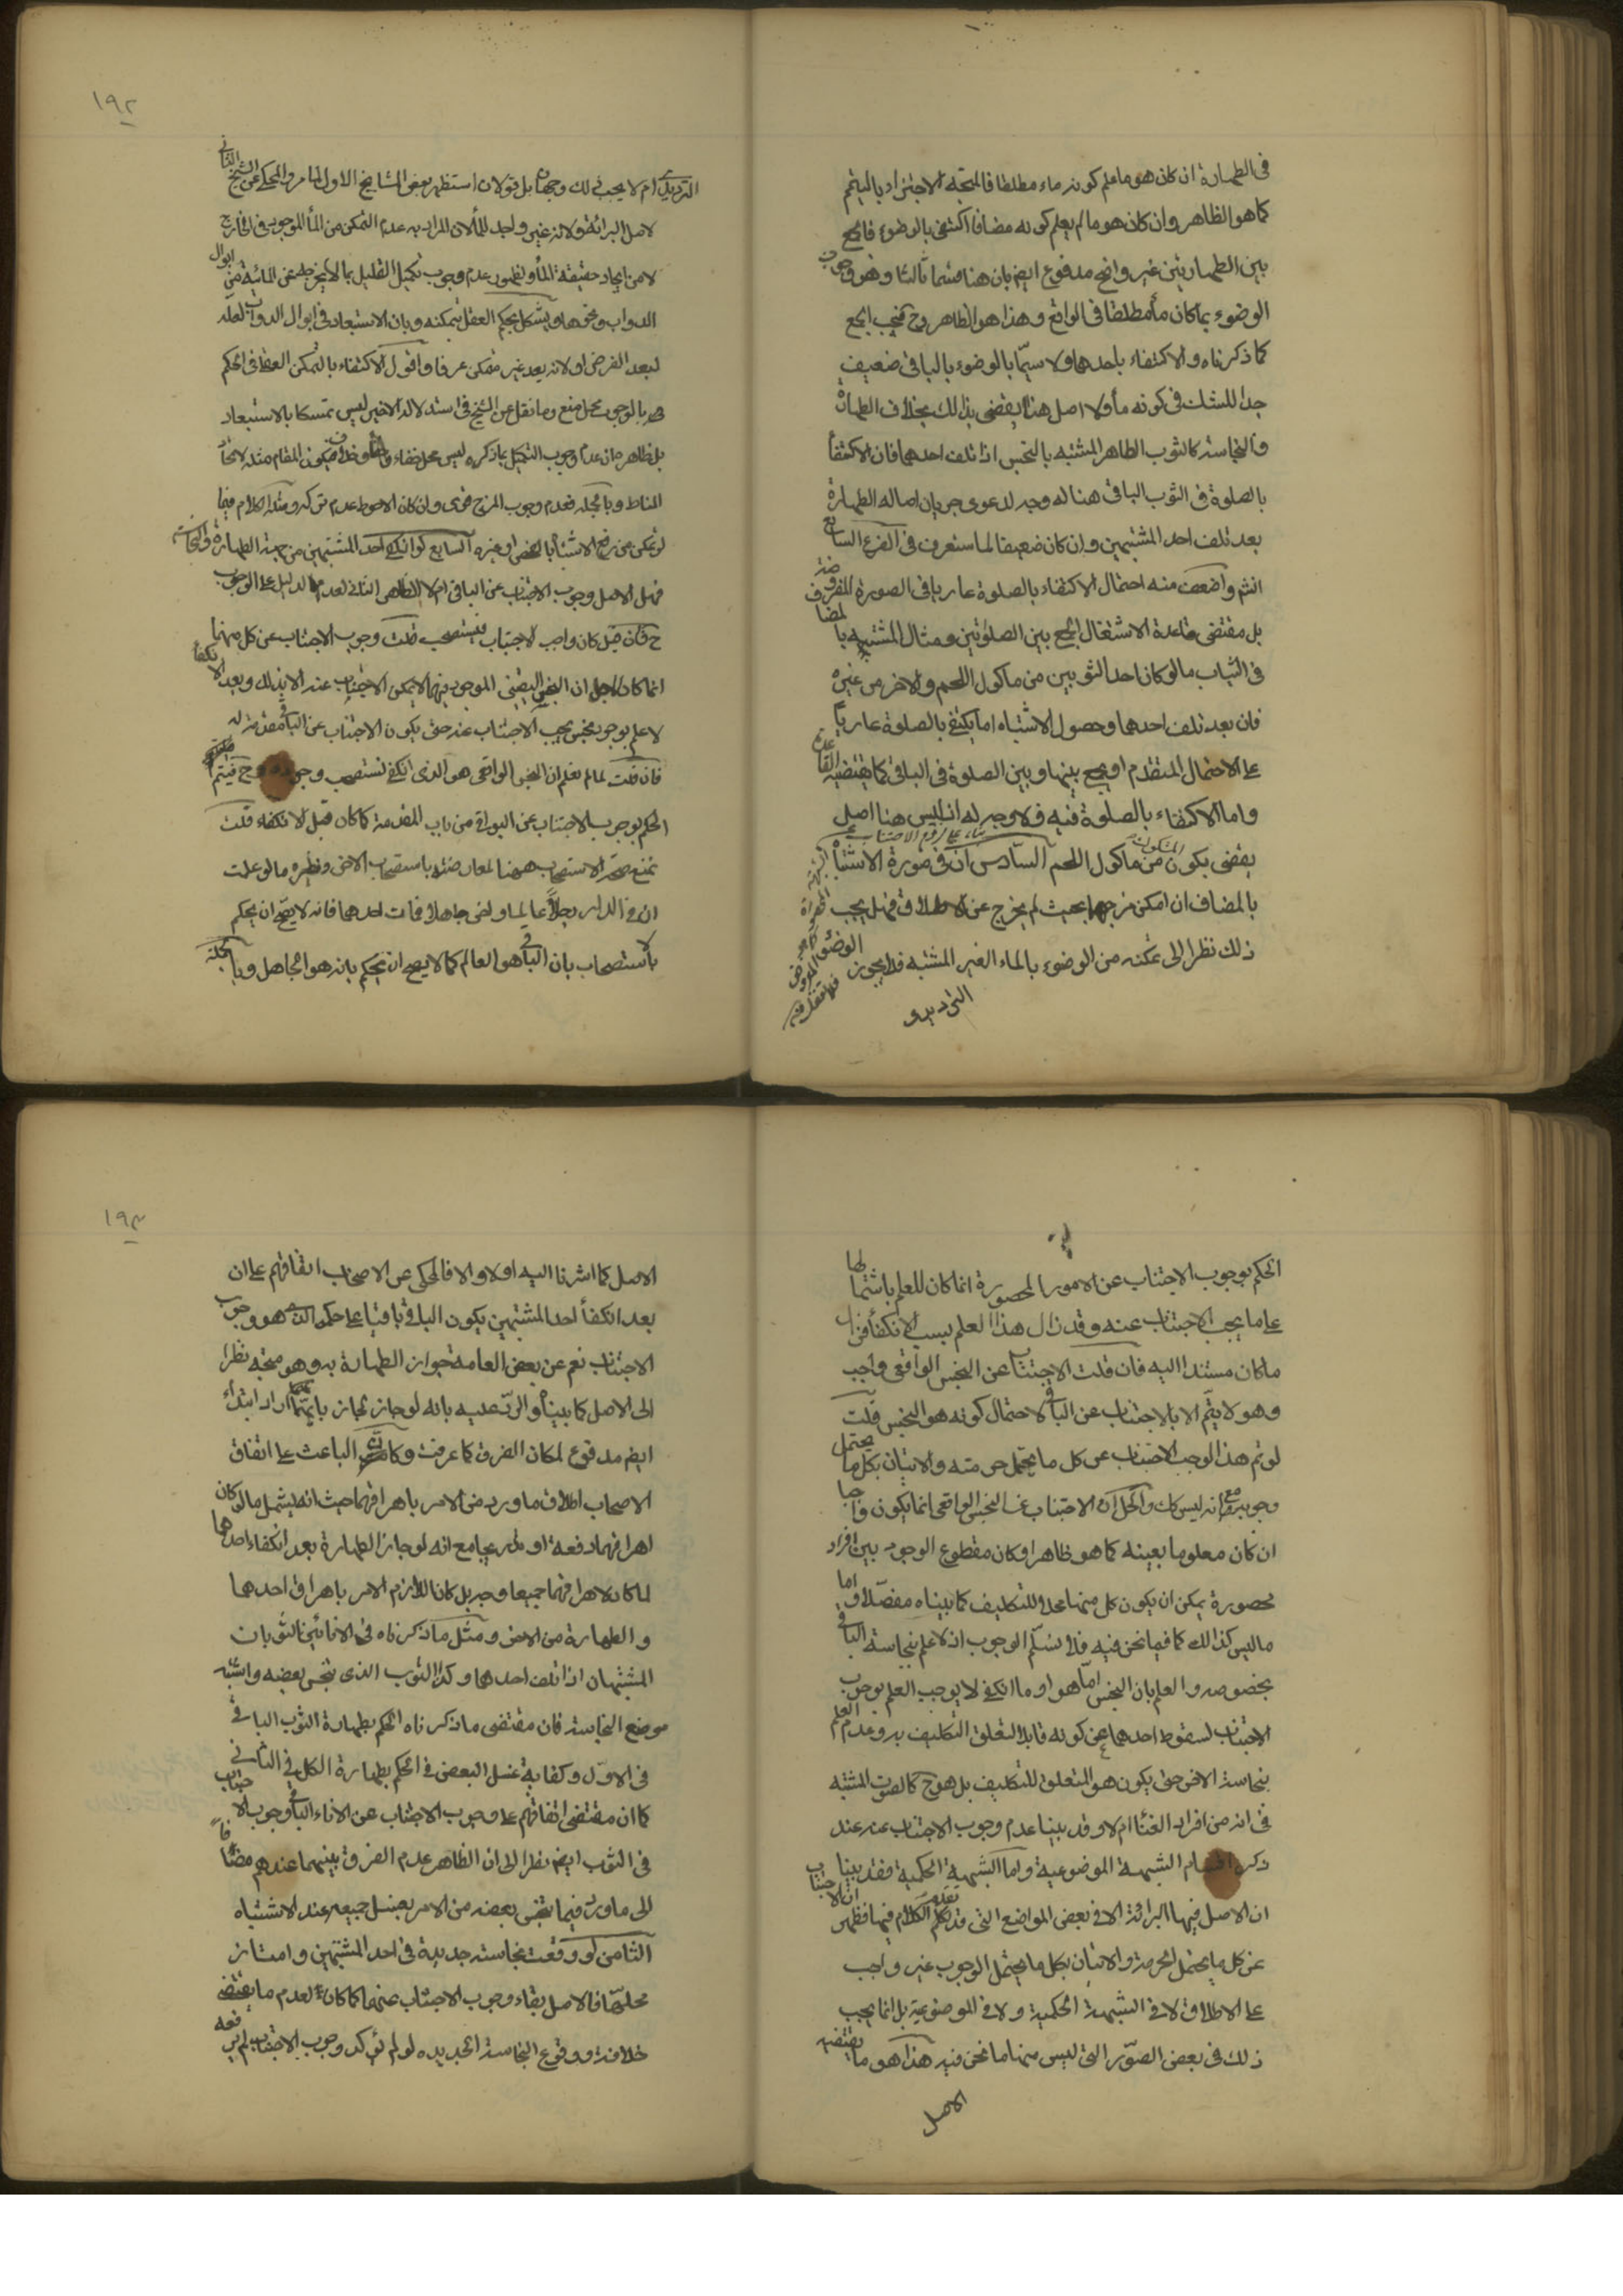 في الطهارة ان كان هو ما علم كونه ماء مطلقا فالمتجه الاجتزاء بالتيمم
كما هو الظاهر وان كان هو ما لم يعلم كونه مضافا اكتفى بالوضوء فالجمع
بين الطهارتين غير واضح مدفوع ايضا بان هنا قسما ثالثا وهو وجوب
الوضوء بما كان مأ مطلقا في الواقع وهذا هو الظاهر وح فيجب الجمع
كما ذكرناه والاكتفاء باحدهما ولا سيّما بالوضوء بالباقي ضعيف
جدا للشك في كونه مأ ولا اصل هنا يقضى بذلك بخلاف الطهارة
والنجاسة كالثوب الطاهر المشتبه بالنجس اذا تلف احدهما فان الاكتفأ
بالصلوة في الثوب الباقي هنا له وجه لدعوى جريان اصالة الطهارة
بعد تلف احد المشتبهين وان كان ضعيفا لما ستعرف في الفرع السابع
انشم واضعف منه احتمال الاكتفاء بالصلوة عاريا في الصورة المفروضة
بل مقتضى قاعدة الاشتغال الجمع بين الصلوتين ومثال المشتبه بالمضا
في الثياب ما لو كان احد الثوبين من ماكول اللحم والاخر من غيره
فان بعد تلف احدهما وحصول الاشتباه اما يكتفي بالصلوة عارياً
على الاحتمال المتقدم او يجمع بينها وبين الصلوة في الباقي كما يقتضيه القاعدة
واما الاكتفاء بالصلوة فيه فلا وجه له اذ ليس هنا اصل
بناء على لزوم الاجتناب عن
يقضى بكون المشكوك من ماكول اللحم السادس ان في صورة الاشتباه
بالمضاف ان امكن مزجهما بحيث لم يخرج عن الاطلاق فهل يجب
ذلك نظرا الى تمكنه من الوضوء بالماء الغير المشتبه فلا يجوز الوضوء
الترديدي
١٩٢
الترديدي ام لا يجب ذلك وجهان بل قولان استظهر بعض المشايخ الاول لما مر والمحكي عن الشيخ الثاني
لاصل البرائة ولانه غير واجد للمأ لان المراد به عدم التمكن من المأ الموجود في الخارج
لا من ايجاد حقيقة المأ ولظهور عدم وجوب تكميل القليل بما لا يخرجه عن المائية من ابوال
الدواب ونحوها ويشكل بحكم العقل بتمكنه وبان الاستبعاد في ابوال الدواب لعله
لبعد الفرض او لانه يعد غير متمكن عرفا واقول الاكتفاء بالتمكن العقلي في الحكم
بالوجوب محل منع وما نقل عن الشيخ في استدلاله الاخير ليس تمسكا بالاستبعاد
بل ظاهره ان عدم وجوب التكميل بما ذكره ليس محل خفاء فيكون المقام مثله لاتحاد
المناط وبالجملة فعدم وجوب المزج قوى وان كان الاحوط عدم تركه ومثله الكلام فيما
لو تمكن من رفع الاشتباه بالفحص او غيره السابع لو انكفى احد المشتبهين من جهة الطهارة والنجاسة
فهل الاصل وجوب الاجتناب عن الباقي ام لا الظاهر الثاني لعدم الدليل على الوجوب
ح فان قيل كان واجب الاجتناب فيستصحب قلت وجوب الاجتناب عن كل منهما
انما كان لاجل ان النجس اليقيني الموجود بينهما لا يمكن الاجتناب عنه الا بذلك وبعد الانكفأ
لا علم بوجود نجس يجب الاجتناب عنه حتى يكون الاجتناب عن الباقي مقدمة له
فان قلت لما لم نعلم ان النجس الواقعي هو الذي انكفى نستصحب وجوده وح فيتم
الحكم بوجوب الاجتناب عن البواقي من باب المقدمة كما كان قبل الانكفاء قلت
نمنع صحة الاستصحاب ههنا لمعارضته باستصحاب الاخر ونظيره ما لو علمت
ان في الدار رجلاً عالما واخر جاهلا فمات احدهما فانه لا يصح ان يحكم
بالاستصحاب بان الباقي هو العالم كما لا يصح ان يحكم بانه هو الجاهل وبالجملة
الحكم بوجوب الاجتناب عن الامور المحصورة انما كان للعلم باشتمالها
على ما يجب الاجتناب عنه وقد زال هذا العلم بسبب الانكفأ فزال
ما كان مستندا اليه فان قلت الاجتناب عن النجس الواقعي واجب
وهو لا يتم الا بالاجتناب عن الباقي لاحتمال كونه هو النجس قلت
لو تم هذا لوجب الاجتناب عن كل ما يحتمل حرمته والاتيان بكل ما يحتمل
وجوبه مع انه ليس كك والحل ان الاجتناب عن النجس الواقعي انما يكون واجبا
ان كان معلوما بعينه كما هو ظاهر او كان مقطوع الوجود بين افراد
محصورة يمكن ان يكون كل منها محلا للتكليف كما بيناه مفصّلا واما
ما ليس كذلك كما فيما نحن فيه فلا نسلّم الوجوب اذ لا علم بنجاسة الباقي
بخصوصه والعلم بان النجس اما هو او ما انكفى لا يوجب العلم بوجوب
الاجتناب لسقوط احدهما عن كونه قابلا لتعلق التكليف به وعدم العلم
بنجاسة الاخر حتى يكون هو المتعلق للتكليف بل هو ح كالصوت المشتبه
في انه من افراد الغنا ام لا وقد بينا عدم وجوب الاجتناب عنه عند
ذكر اقسام الشبهة الموضوعية واما الشبهة الحكمية فقد بينا
ان الاصل فيها البرائة الا في بعض المواضع التي قد تقدم الكلام فيها فظهر ان الاجتناب
عن كل ما يحتمل الحرمة والاتيان بكل ما يحتمل الوجوب غير واجب
على الاطلاق لا في الشبهة الحكمية ولا في الموضوعية بل انما يجب
ذلك في بعض الصّور التي ليس منها ما نحن فيه هذا هو ما يقتضيه
الاصل
١٩٣
الاصل كما اشرنا اليه اولا والا فالمحكي عن الاصحاب اتفاقهم على ان
بعد انكفأ احد المشتبهين يكون الباقي باقيا على حكمه الذي هو وجوب
الاجتناب نعم عن بعض العامة جواز الطهارة به وهو متجه نظرا
الى الاصل كما بيناه والردّ عليه بانه لو جاز لجاز بايّهما اراد ابتداء
ايضا مدفوع لمكان الفرق كما عرفت وكان الباعث على اتفاق
الاصحاب اطلاق ما ورد من الامر باهراقهما حيث انه يشمل ما لو كان
اهراقهما دفعة او تدريجا مع انه لو جاز الطهارة بعد انكفاء احدهما
لما كان لاهراقهما جميعا وجه بل كان اللازم الامر باهراق احدهما
والطهارة من الاخر ومثل ما ذكرناه في الانائين الثوبان
المشتبهان اذا تلف احدهما وكذا الثوب الذي نجس بعضه واشتبه
موضع النجاسة فان مقتضى ما ذكرناه الحكم بطهارة الثوب الباقي
في الاوّل وكفاية غسل البعض في الحكم بطهارة الكل في الثاني
كما ان مقتضى اتفاقهم على وجوب الاجتناب عن الاناء الباقي وجوب الاجتناب
في الثوب ايضا نظرا الى ان الظاهر عدم الفرق بينهما عندهم مضافاً
الى ما ورد فيما نجس بعضه من الامر بغسل جميعه عند الاشتباه
الثامن لو وقعت نجاسة جديدة في احد المشتبهين وامتاز
محلها فالاصل بقاء وجوب الاجتناب عنهما كما كان لعدم ما يقتضى
خلافه ووقوع النجاسة الجديده لو لم يؤكد وجوب الاجتناب لم يرفعه